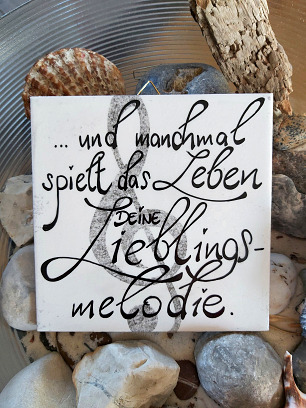 ... und manchmal
spielt das Leben
DEINE
Lieblings-
melodie.